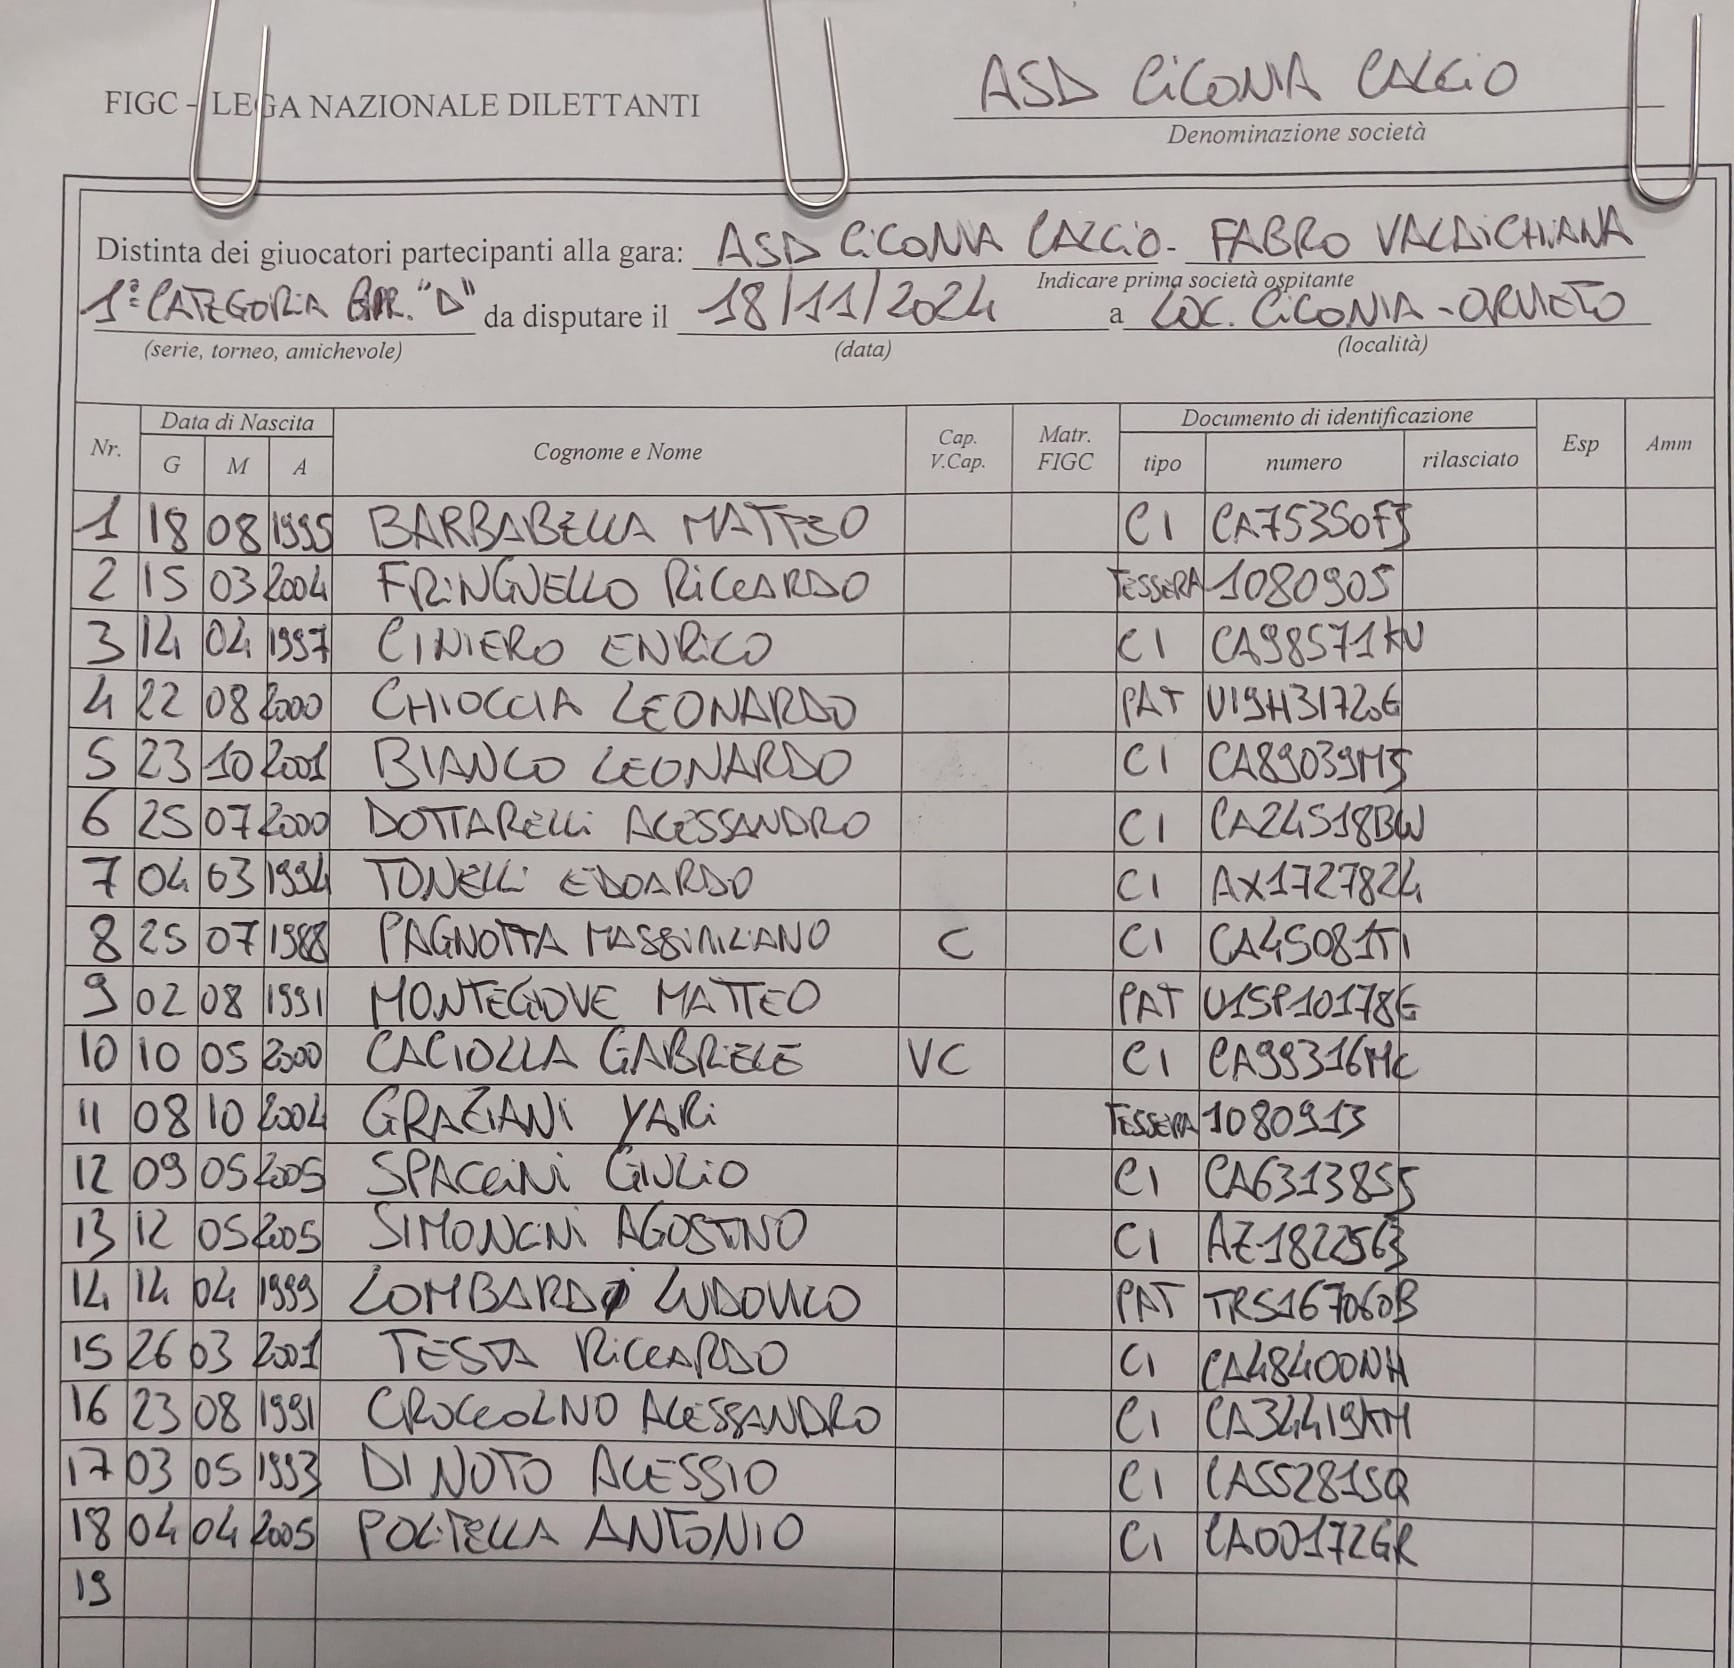 FIGC - LEGA NAZIONALE DILETTANTI
ASD CICONIA CALCIO
Denominazione società
Distinta dei giuocatori partecipanti alla gara: ASD CICONIA CALCIO - FABRO VALDICHIANA
Indicare prima società ospitante
1ª CATEGORIA GIR. "D" da disputare il 18/11/2024 a LOC. CICONIA - ORVIETO
(serie, torneo, amichevole) (data) (località)
Nr. Data di Nascita Cognome e Nome Cap. V.Cap. Matr. FIGC Documento di identificazione Esp Amm
G M A tipo numero rilasciato
1 18 08 1995 BARBABELLA MATTEO CI CA75350FJ
2 15 03 2004 FRINGUELLO RICCARDO TESSERA 1080905
3 14 04 1997 CINIERO ENRICO CI CA98571KU
4 22 08 2000 CHIOCCIA LEONARDO PAT U19H31720G
5 23 10 2001 BIANCO LEONARDO CI CA89039MJ
6 25 07 2000 DOTTARELLI ALESSANDRO CI CA24518BW
7 04 03 1994 TONELLI EDOARDO CI AX1727824
8 25 07 1988 PAGNOTTA MASSIMILIANO C CI CA45081TI
9 02 08 1991 MONTEGIOVE MATTEO PAT U15P10178G
10 10 05 2000 CACIOLLA GABRIELE VC CI CA99316MC
11 08 10 2004 GRAZIANI YARI TESSERA 1080913
12 09 05 2005 SPACCINI GIULIO CI CA63138SJ
13 12 05 2005 SIMONCINI AGOSTINO CI AZ1822563
14 14 04 1999 LOMBARDI LUDOVICO PAT TR5167060B
15 26 03 2001 TESTA RICCARDO CI CA48400NH
16 23 08 1991 CROCCOLINO ALESSANDRO CI CA34419KM
17 03 05 1993 DI NOTO ALESSIO CI CA55281SQ
18 04 04 2005 POLTELLA ANTONIO CI CA00172GR
19